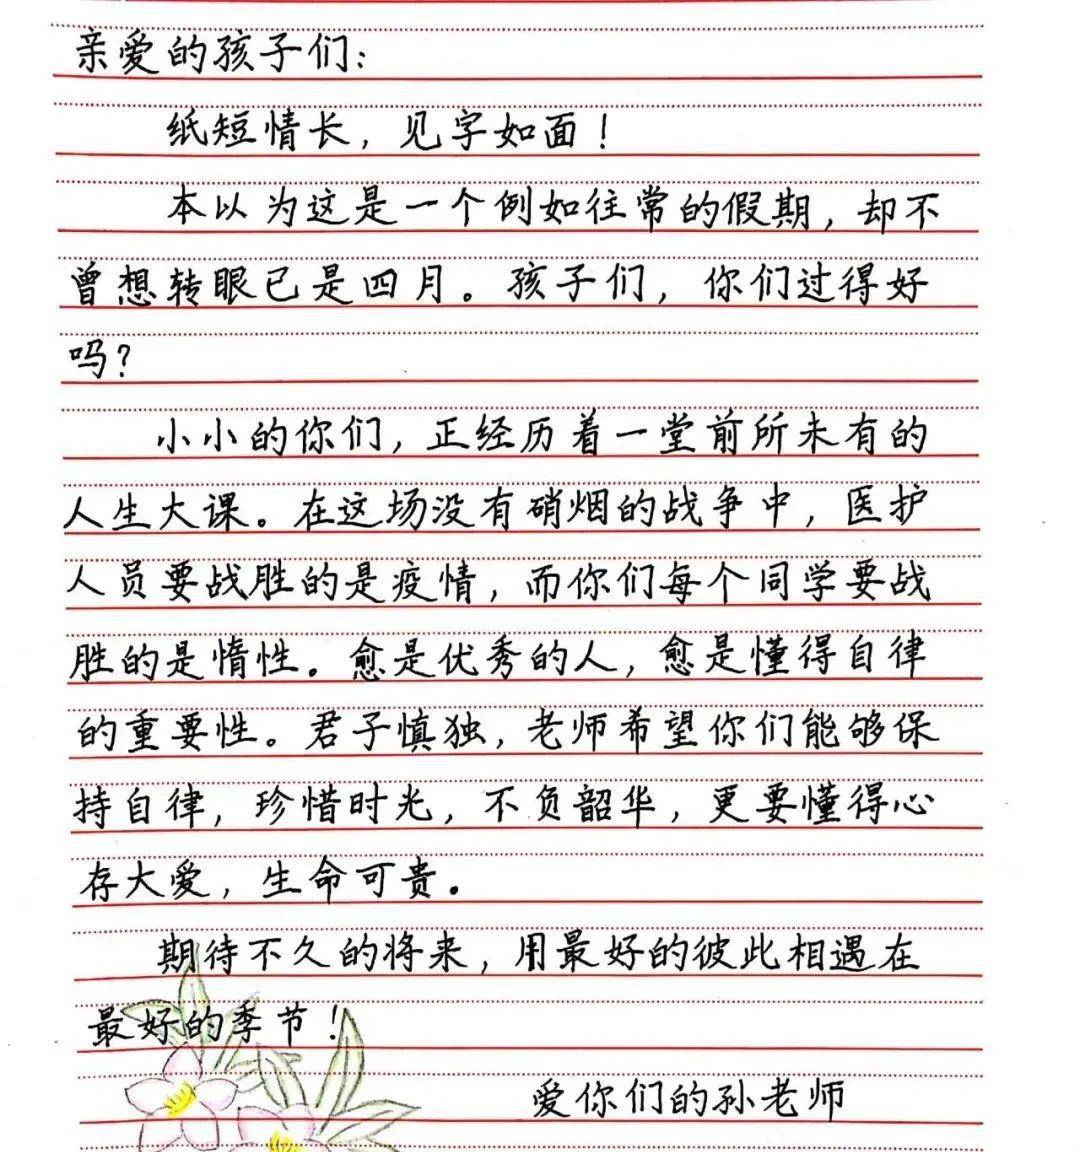 亲爱的孩子们:
纸短情长，见字如面！
本以为这是一个例如往常的假期，却不
曾想转眼已是四月。孩子们，你们过得好
吗？
小小的你们，正经历着一堂前所未有的
人生大课。在这场没有硝烟的战争中，医护
人员要战胜的是疫情，而你们每个同学要战
胜的是惰性。愈是优秀的人，愈是懂得自律
的重要性。君子慎独，老师希望你们能够保
持自律，珍惜时光，不负韶华，更要懂得心
存大爱，生命可贵。
期待不久的将来，用最好的彼此相遇在
最好的季节！
爱你们的孙老师